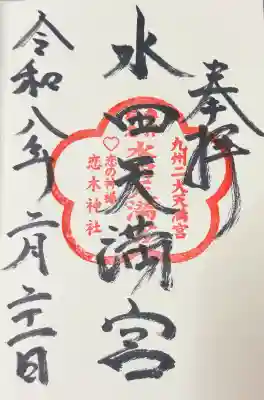 奉拝
水田天満宮
令和八年二月二十一日
九州二大天満宮
♡恋の神様
恋木神社